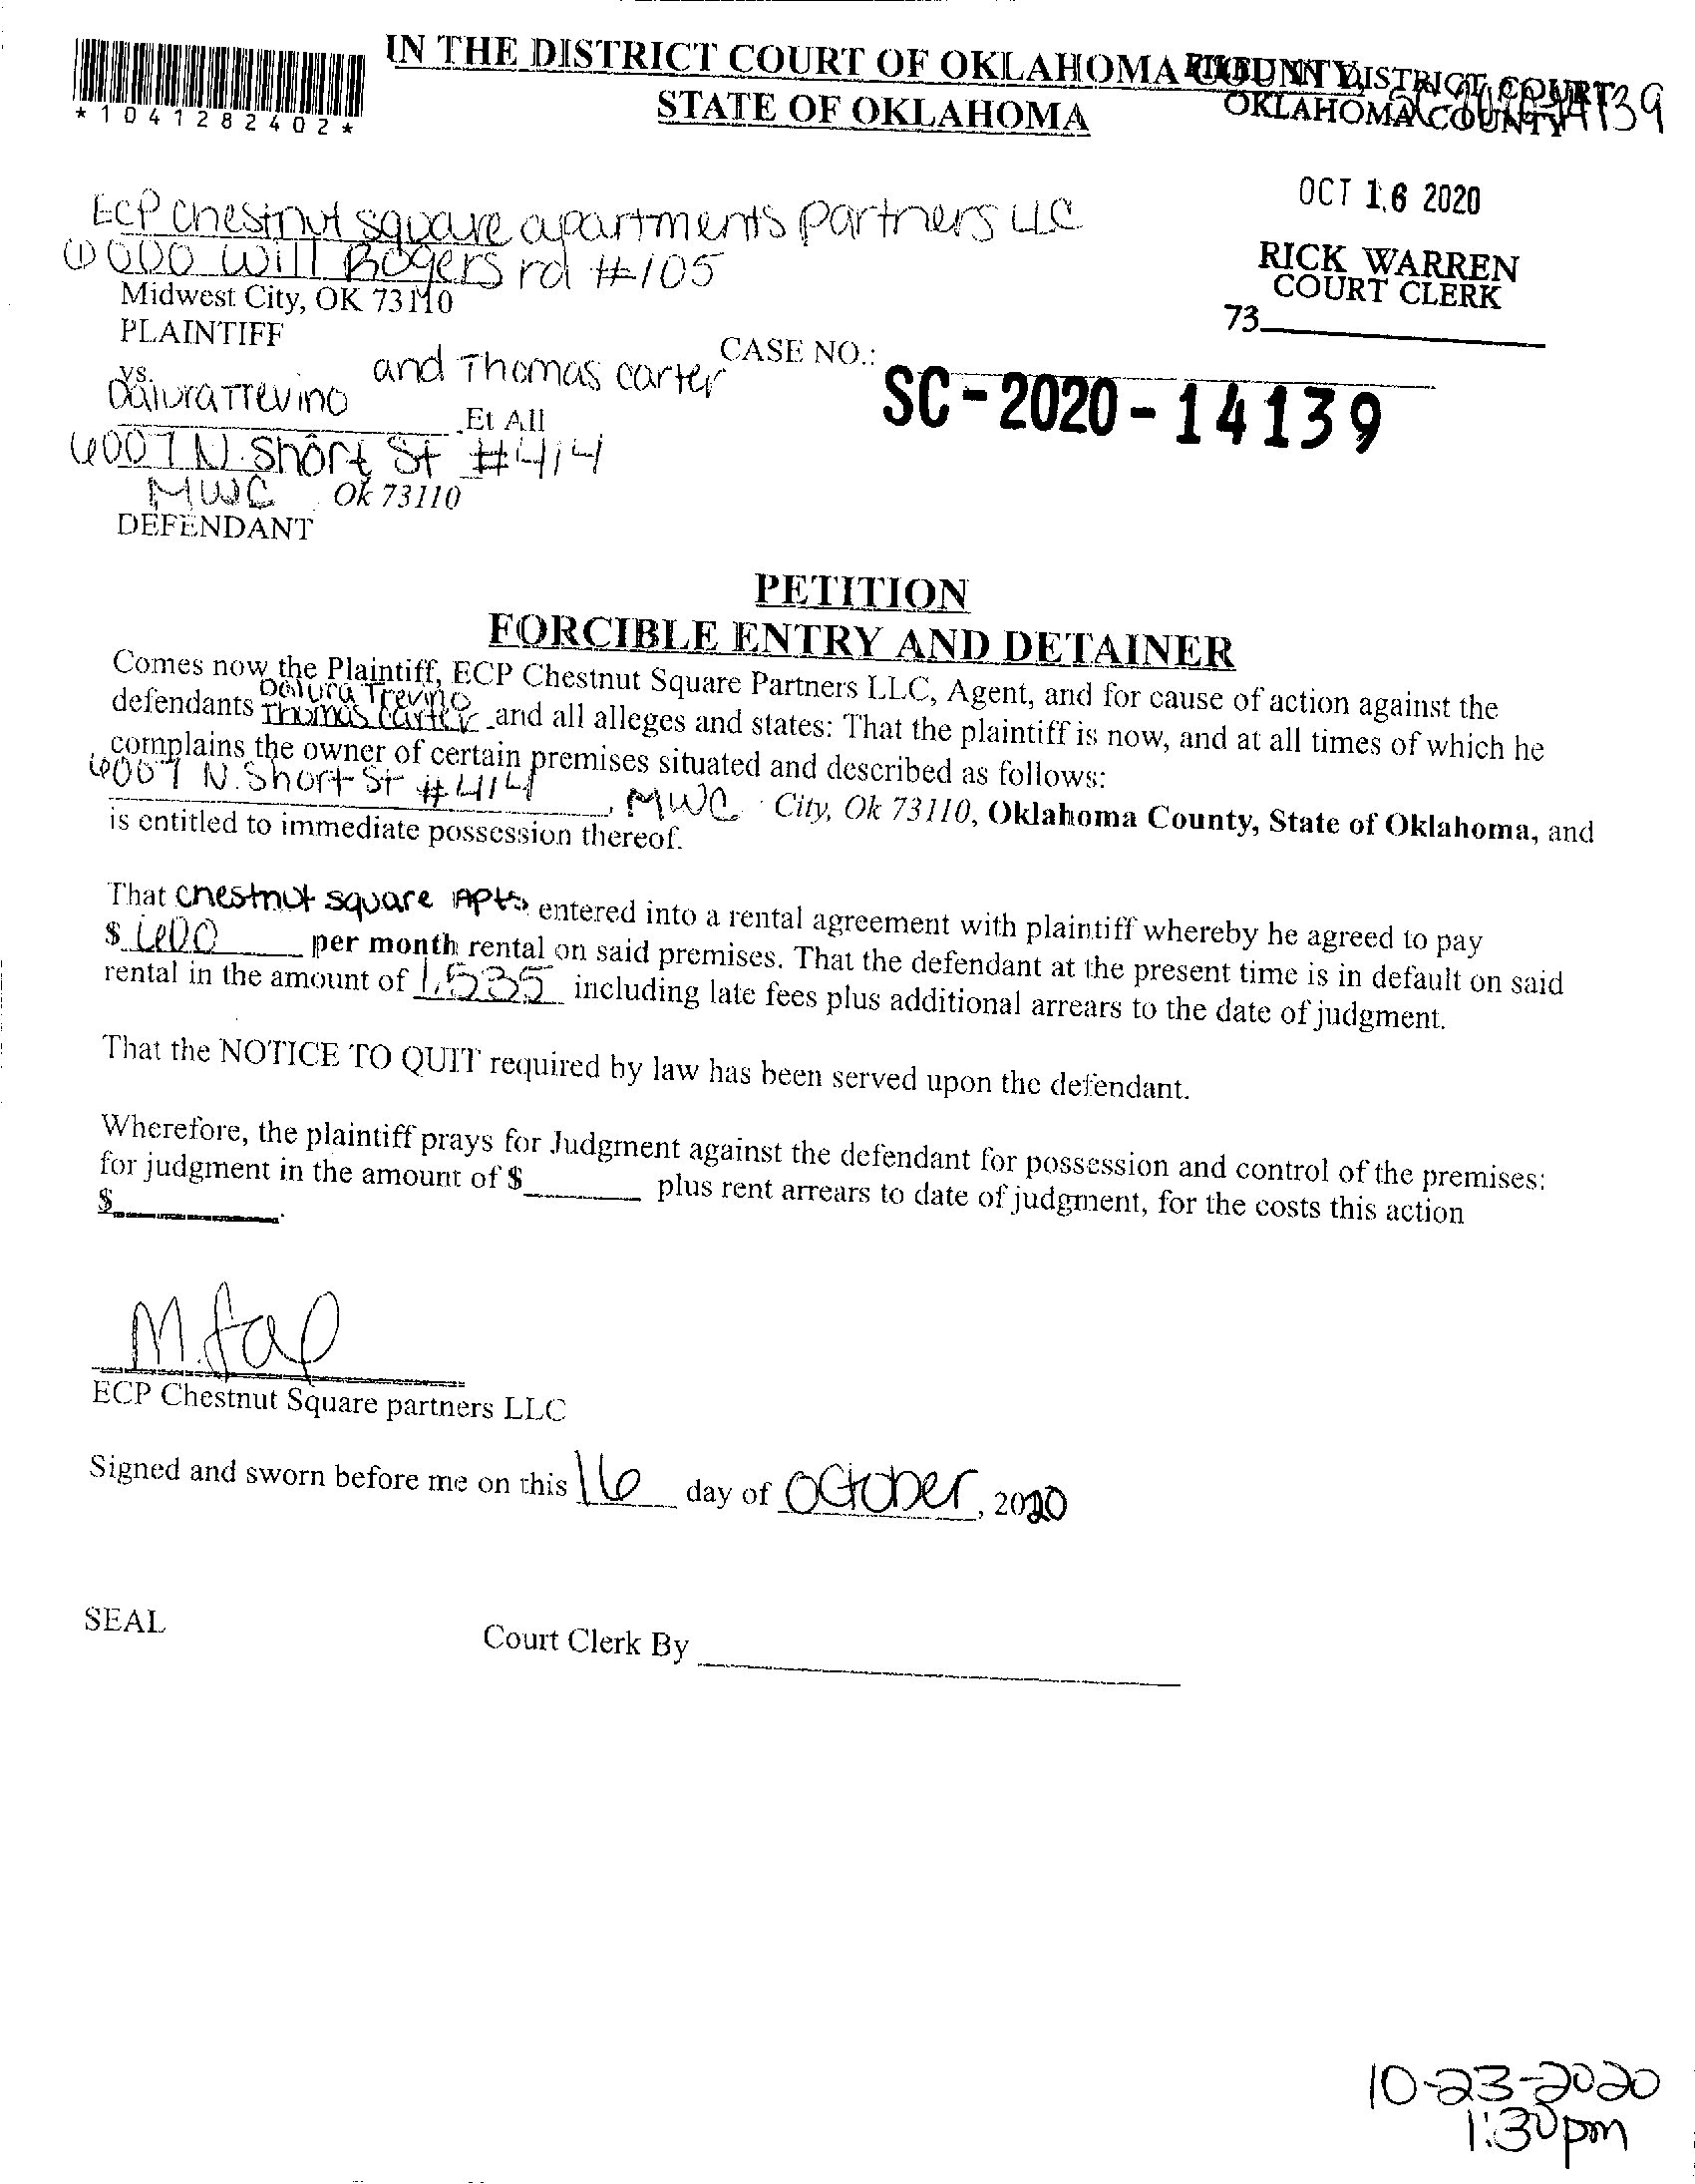 IN THE DISTRICT COURT OF OKLAHOMA COUNTY,
STATE OF OKLAHOMA
FILED IN DISTRICT COURT
OKLAHOMA COUNTY
*1041282402*
OCT 16 2020
RICK WARREN
COURT CLERK
73
ECP Chestnut square apartments partners LLC
6000 Will Rogers rd #105
Midwest City, OK 73110
PLAINTIFF
vs.
and Thomas carter
CASE NO.:
SC-2020-14139
Trevino
Et All
6007 N. Short St #414
MWC Ok 73110
DEFENDANT
PETITION
FORCIBLE ENTRY AND DETAINER
Comes now the Plaintiff, ECP Chestnut Square Partners LLC, Agent, and for cause of action against the
Trevino
defendants Thomas Carter and all alleges and states: That the plaintiff is now, and at all times of which he
complains the owner of certain premises situated and described as follows:
6007 N. Short St #414, MWC City, Ok 73110, Oklahoma County, State of Oklahoma, and
is entitled to immediate possession thereof.
That Chestnut square Apts entered into a rental agreement with plaintiff whereby he agreed to pay
$ 600 per month rental on said premises. That the defendant at the present time is in default on said
rental in the amount of 1,535 including late fees plus additional arrears to the date of judgment.
That the NOTICE TO QUIT required by law has been served upon the defendant.
Wherefore, the plaintiff prays for Judgment against the defendant for possession and control of the premises:
for judgment in the amount of $ plus rent arrears to date of judgment, for the costs this action
$ .
ECP Chestnut Square partners LLC
Signed and sworn before me on this 16 day of October, 2020
SEAL
Court Clerk By
10-23-2020
1:30pm